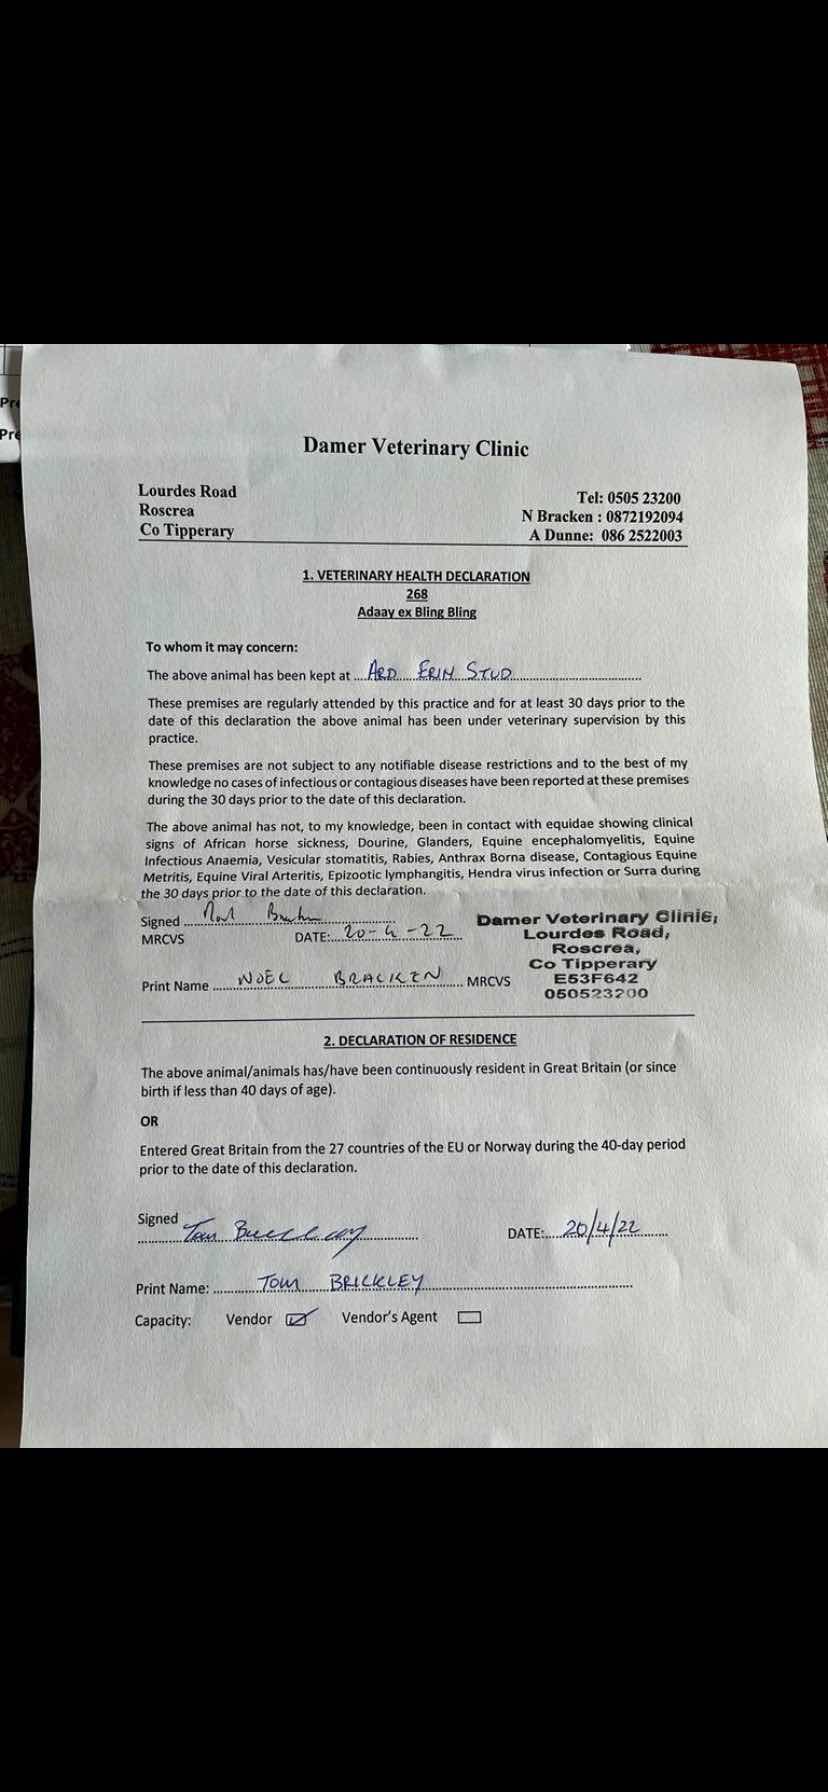 Pre
Pre
Damer Veterinary Clinic
Lourdes Road
Roscrea
Co Tipperary
Tel: 0505 23200
N Bracken : 0872192094
A Dunne: 086 2522003
1. VETERINARY HEALTH DECLARATION
268
Adaay ex Bling Bling
To whom it may concern:
The above animal has been kept at ....ARD ERIN STUD
These premises are regularly attended by this practice and for at least 30 days prior to the
date of this declaration the above animal has been under veterinary supervision by this
practice.
These premises are not subject to any notifiable disease restrictions and to the best of my
knowledge no cases of infectious or contagious diseases have been reported at these premises
during the 30 days prior to the date of this declaration.
The above animal has not, to my knowledge, been in contact with equidae showing clinical
signs of African horse sickness, Dourine, Glanders, Equine encephalomyelitis, Equine
Infectious Anaemia, Vesicular stomatitis, Rabies, Anthrax Borna disease, Contagious Equine
Metritis, Equine Viral Arteritis, Epizootic lymphangitis, Hendra virus infection or Surra during
the 30 days prior to the date of this declaration.
Signed Noel Bracken
MRCVS DATE: 20-4-22
Print Name NOEL BRACKEN MRCVS
Damer Veterinary Clinic,
Lourdes Road,
Roscrea,
Co Tipperary
E53F642
050523200
2. DECLARATION OF RESIDENCE
The above animal/animals has/have been continuously resident in Great Britain (or since
birth if less than 40 days of age).
OR
Entered Great Britain from the 27 countries of the EU or Norway during the 40-day period
prior to the date of this declaration.
Signed Tom Brickley DATE: 20/4/22
Print Name: TOM BRICKLEY
Capacity: Vendor Vendor's Agent